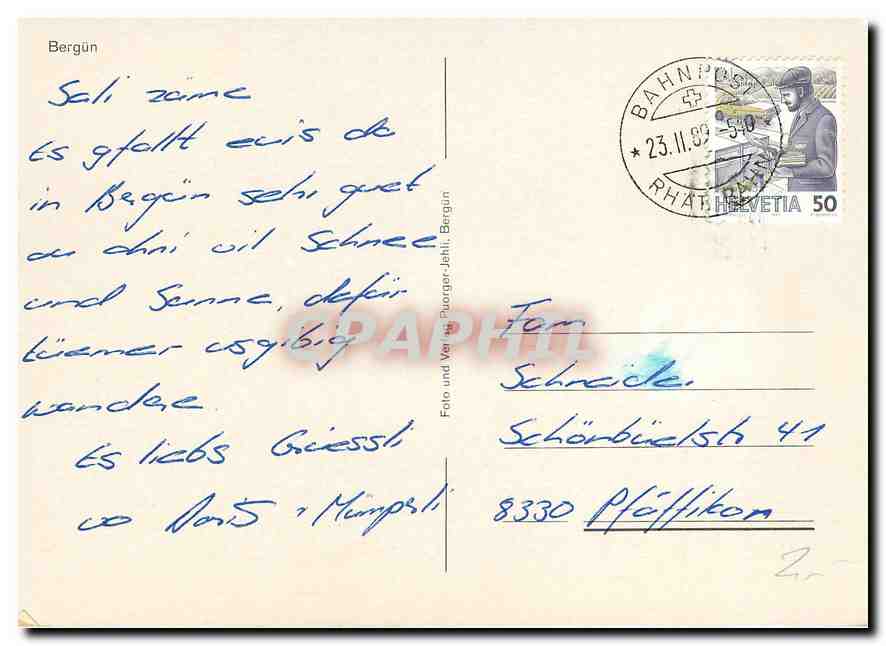 Bergün
Sali zäme
Es gfallt euis da
in Bergün sehr guet
au ohni vil Schnee
und Sunne, dafür
tüemer usgibig
wandere.
Es liebs Grüessli
vo Doris +
Foto und Verlag Puorger-Jehli, Bergün
BAHNPOST
23.II.89 -5
RHÄT. BAHN
HELVETIA 50
Fam
Schneider
Schönbüelstr 41
8330 Pfäffikon
2.-
CPAPHIL